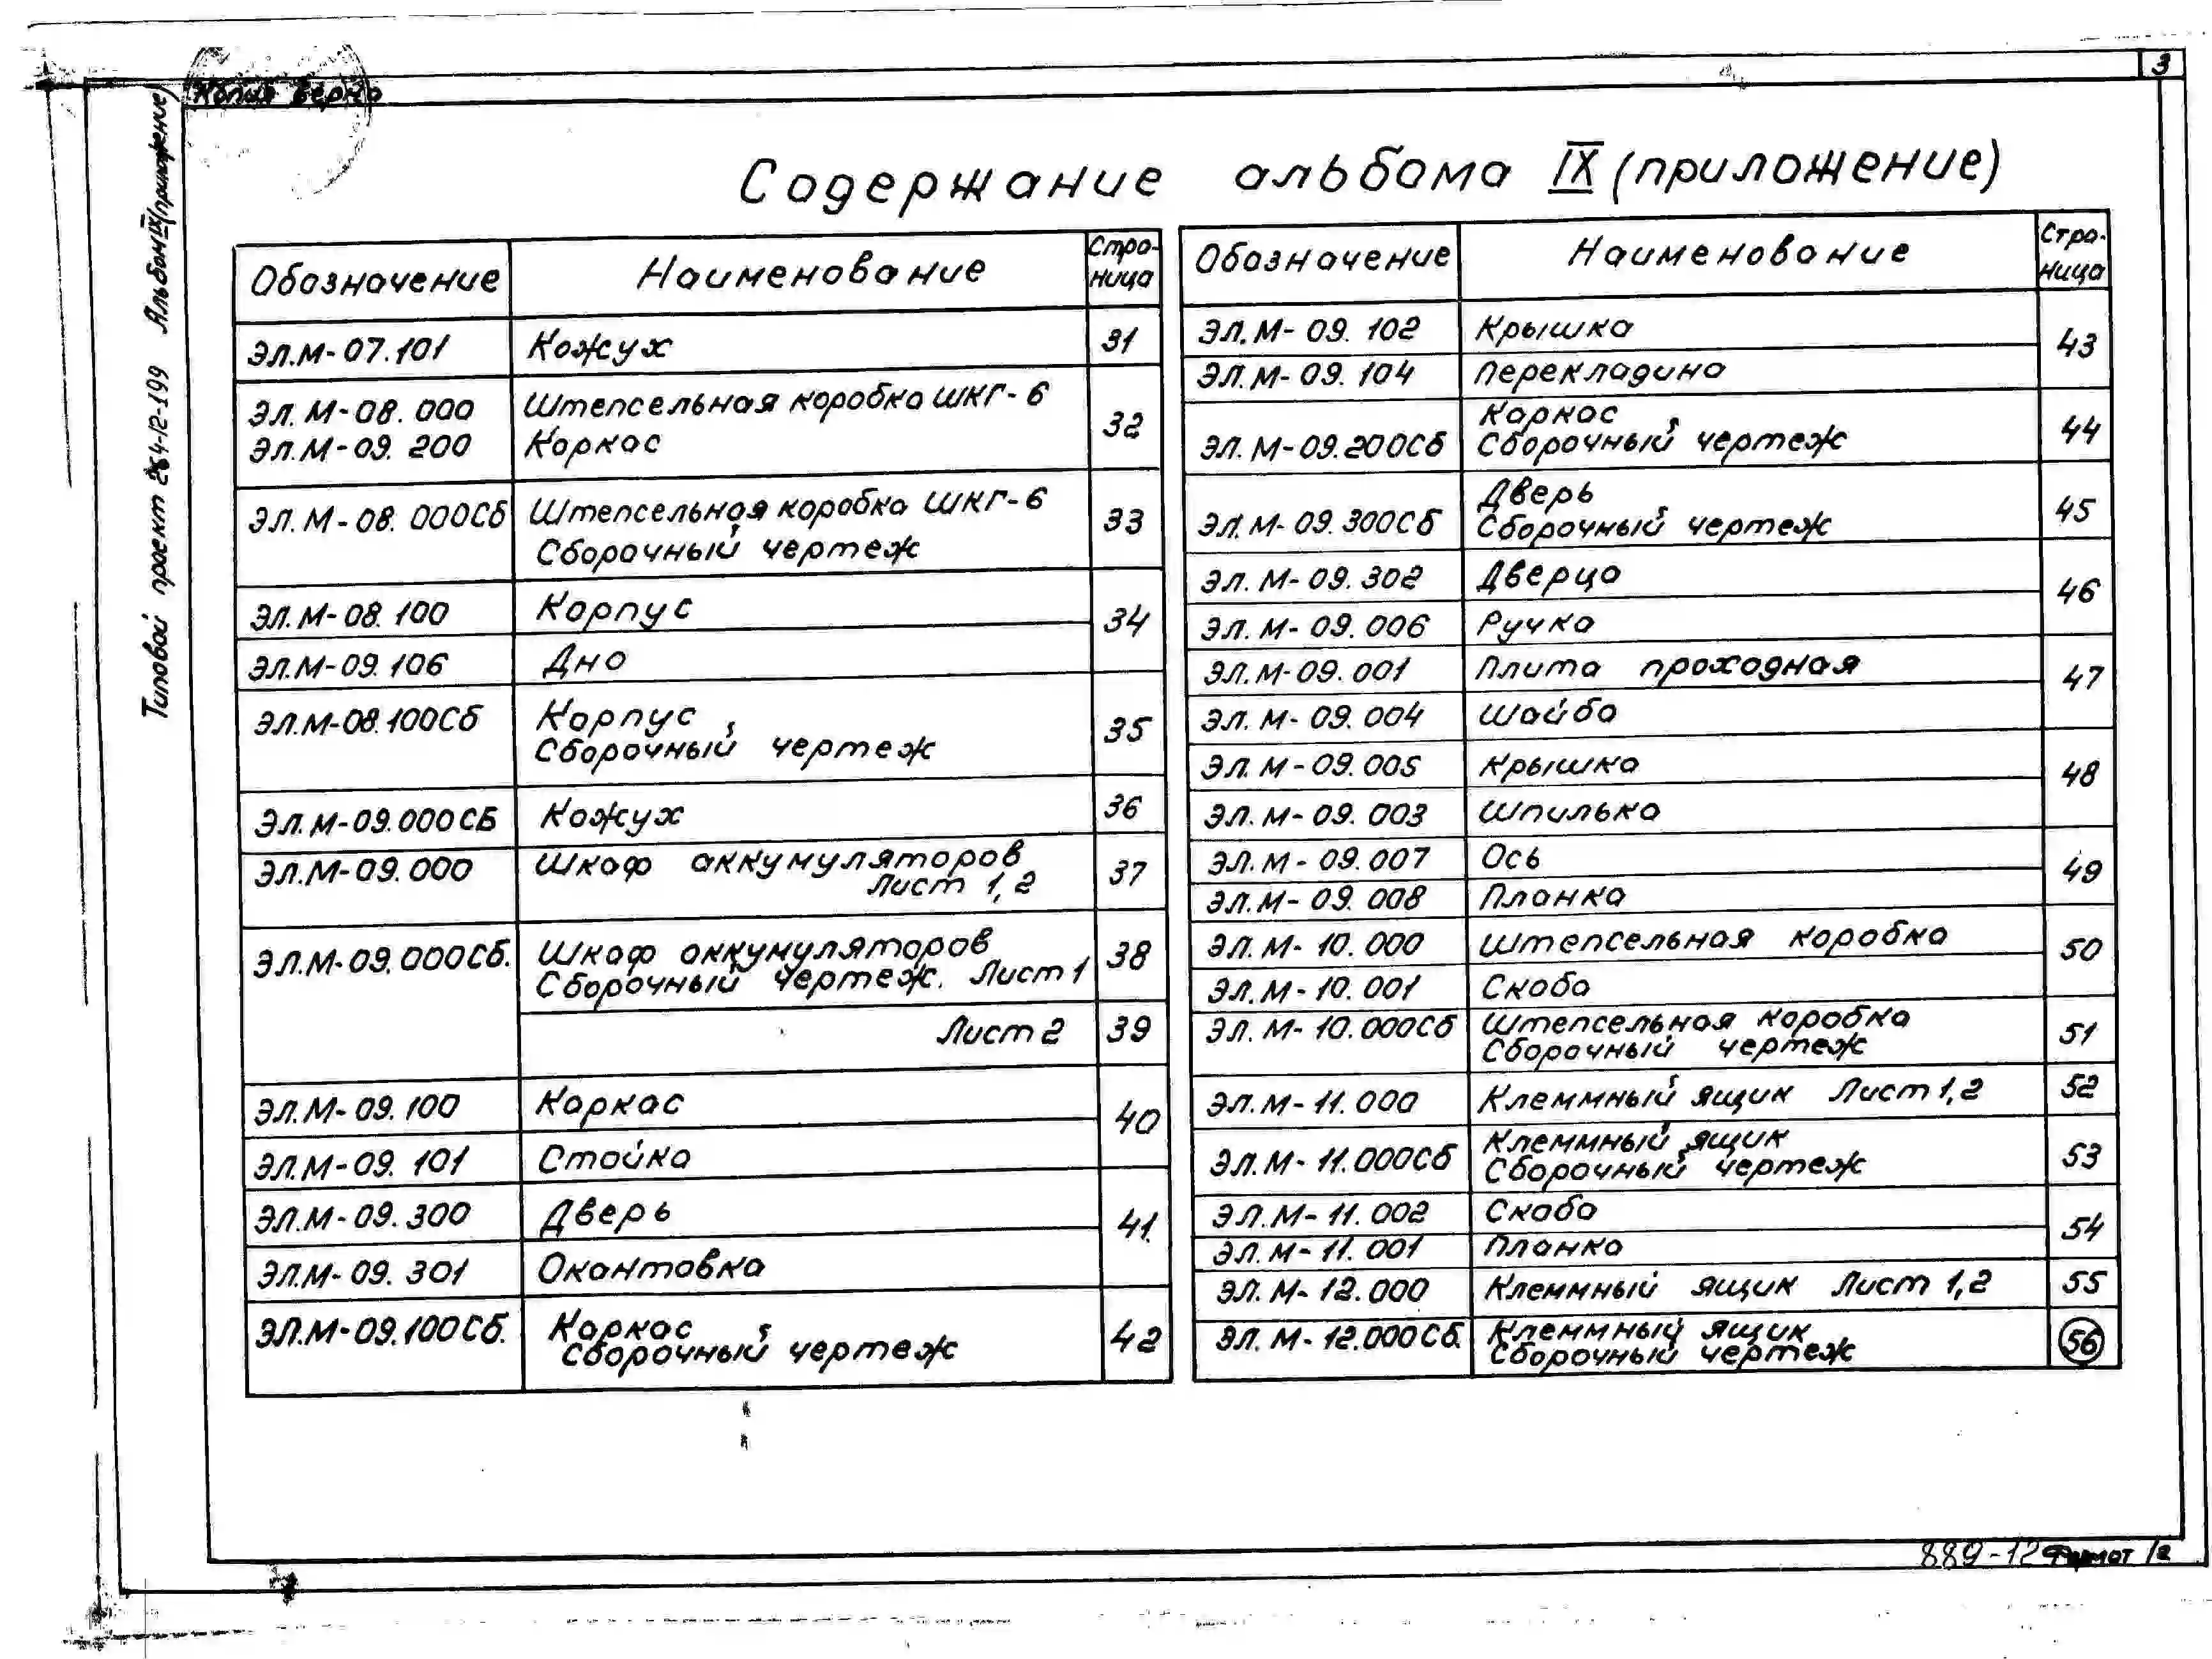 3
Копия верна
Типовой проект 264-12-199 Альбом IX (приложение)
Содержание альбома IX (приложение)
Обозначение Наименование Стра-
ница
ЭЛ.М-07.101 Кожух 31
ЭЛ.М-08.000 Штепсельная коробка ШКГ-6 32
ЭЛ.М-09.200 Каркас
ЭЛ.М-08.000Сб Штепсельная коробка ШКГ-6 33
Сборочный чертеж
ЭЛ.М-08.100 Корпус 34
ЭЛ.М-09.106 Дно
ЭЛ.М-08.100Сб Корпус 35
Сборочный чертеж
ЭЛ.М-09.000СБ Кожух 36
ЭЛ.М-09.000 Шкаф аккумуляторов 37
Лист 1,2
ЭЛ.М-09.000Сб. Шкаф аккумуляторов 38
Сборочный чертеж. Лист 1
Лист 2 39
ЭЛ.М-09.100 Каркас 40
ЭЛ.М-09.101 Стойка
ЭЛ.М-09.300 Дверь 41.
ЭЛ.М-09.301 Окантовка
ЭЛ.М-09.100Сб. Каркас 42
Сборочный чертеж
Обозначение Наименование Стра-
ница
ЭЛ.М-09.102 Крышка 43
ЭЛ.М-09.104 Перекладина
Каркас 44
ЭЛ.М-09.200Сб Сборочный чертеж
Дверь 45
ЭЛ.М-09.300Сб Сборочный чертеж
ЭЛ.М-09.302 Дверца 46
ЭЛ.М-09.006 Ручка
ЭЛ.М-09.001 Плита проходная 47
ЭЛ.М-09.004 Шайба
ЭЛ.М-09.005 Крышка 48
ЭЛ.М-09.003 Шпилька
ЭЛ.М-09.007 Ось 49
ЭЛ.М-09.008 Планка
ЭЛ.М-10.000 Штепсельная коробка 50
ЭЛ.М-10.001 Скоба
ЭЛ.М-10.000Сб Штепсельная коробка 51
Сборочный чертеж
ЭЛ.М-11.000 Клеммный ящик Лист 1,2 52
Клеммный ящик 53
ЭЛ.М-11.000Сб Сборочный чертеж
ЭЛ.М-11.002 Скоба 54
ЭЛ.М-11.001 Планка
ЭЛ.М-12.000 Клеммный ящик Лист 1,2 55
ЭЛ.М-12.000Сб. Клеммный ящик 56
Сборочный чертеж
889-12 Формат 12